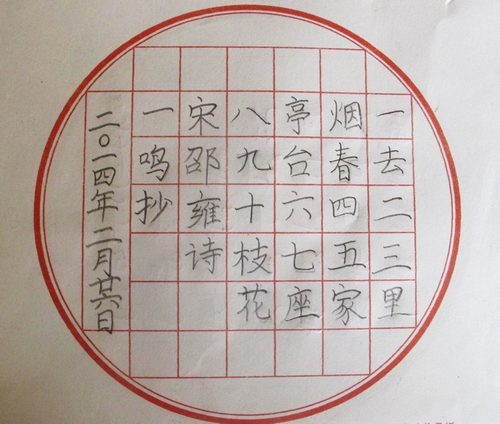 一去二三里
烟春四五家
亭台六七座
八九十枝花
宋邵雍诗
一鸣抄
二〇一四年二月廿六日